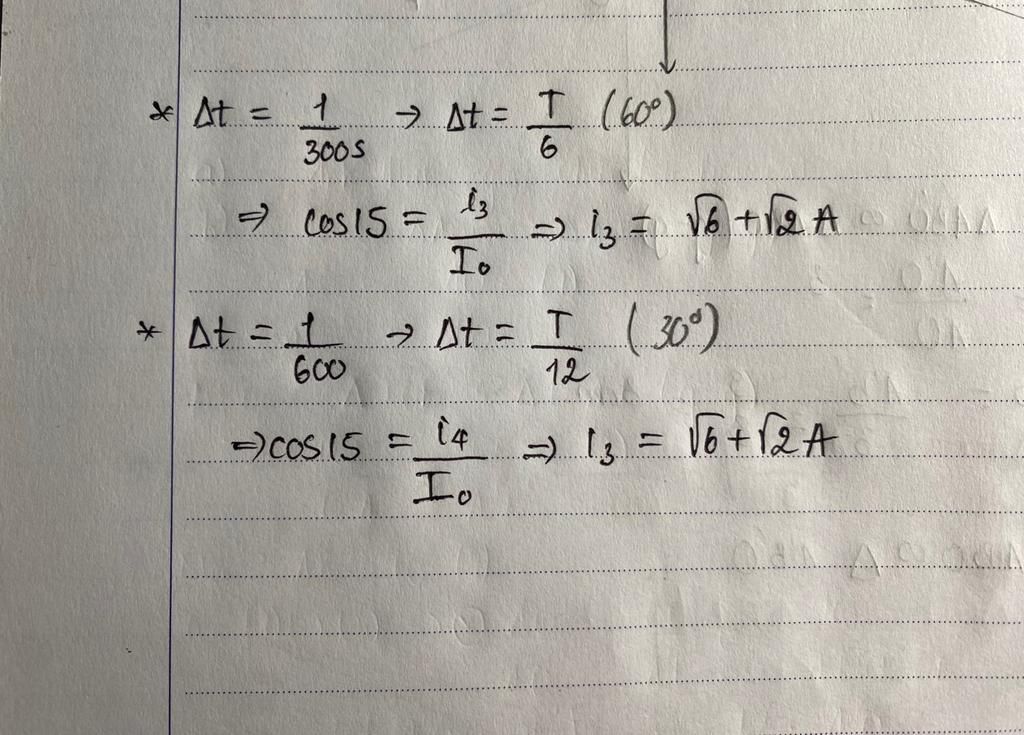 * Δt = 1/300s → Δt = T/6 (60°)
⇒ cos15 = i₃/I₀ ⇒ i₃ = √6 + √2 A
* Δt = 1/600 → Δt = T/12 (30°)
⇒ cos15 = i₄/I₀ ⇒ i₃ = √6 + √2 A